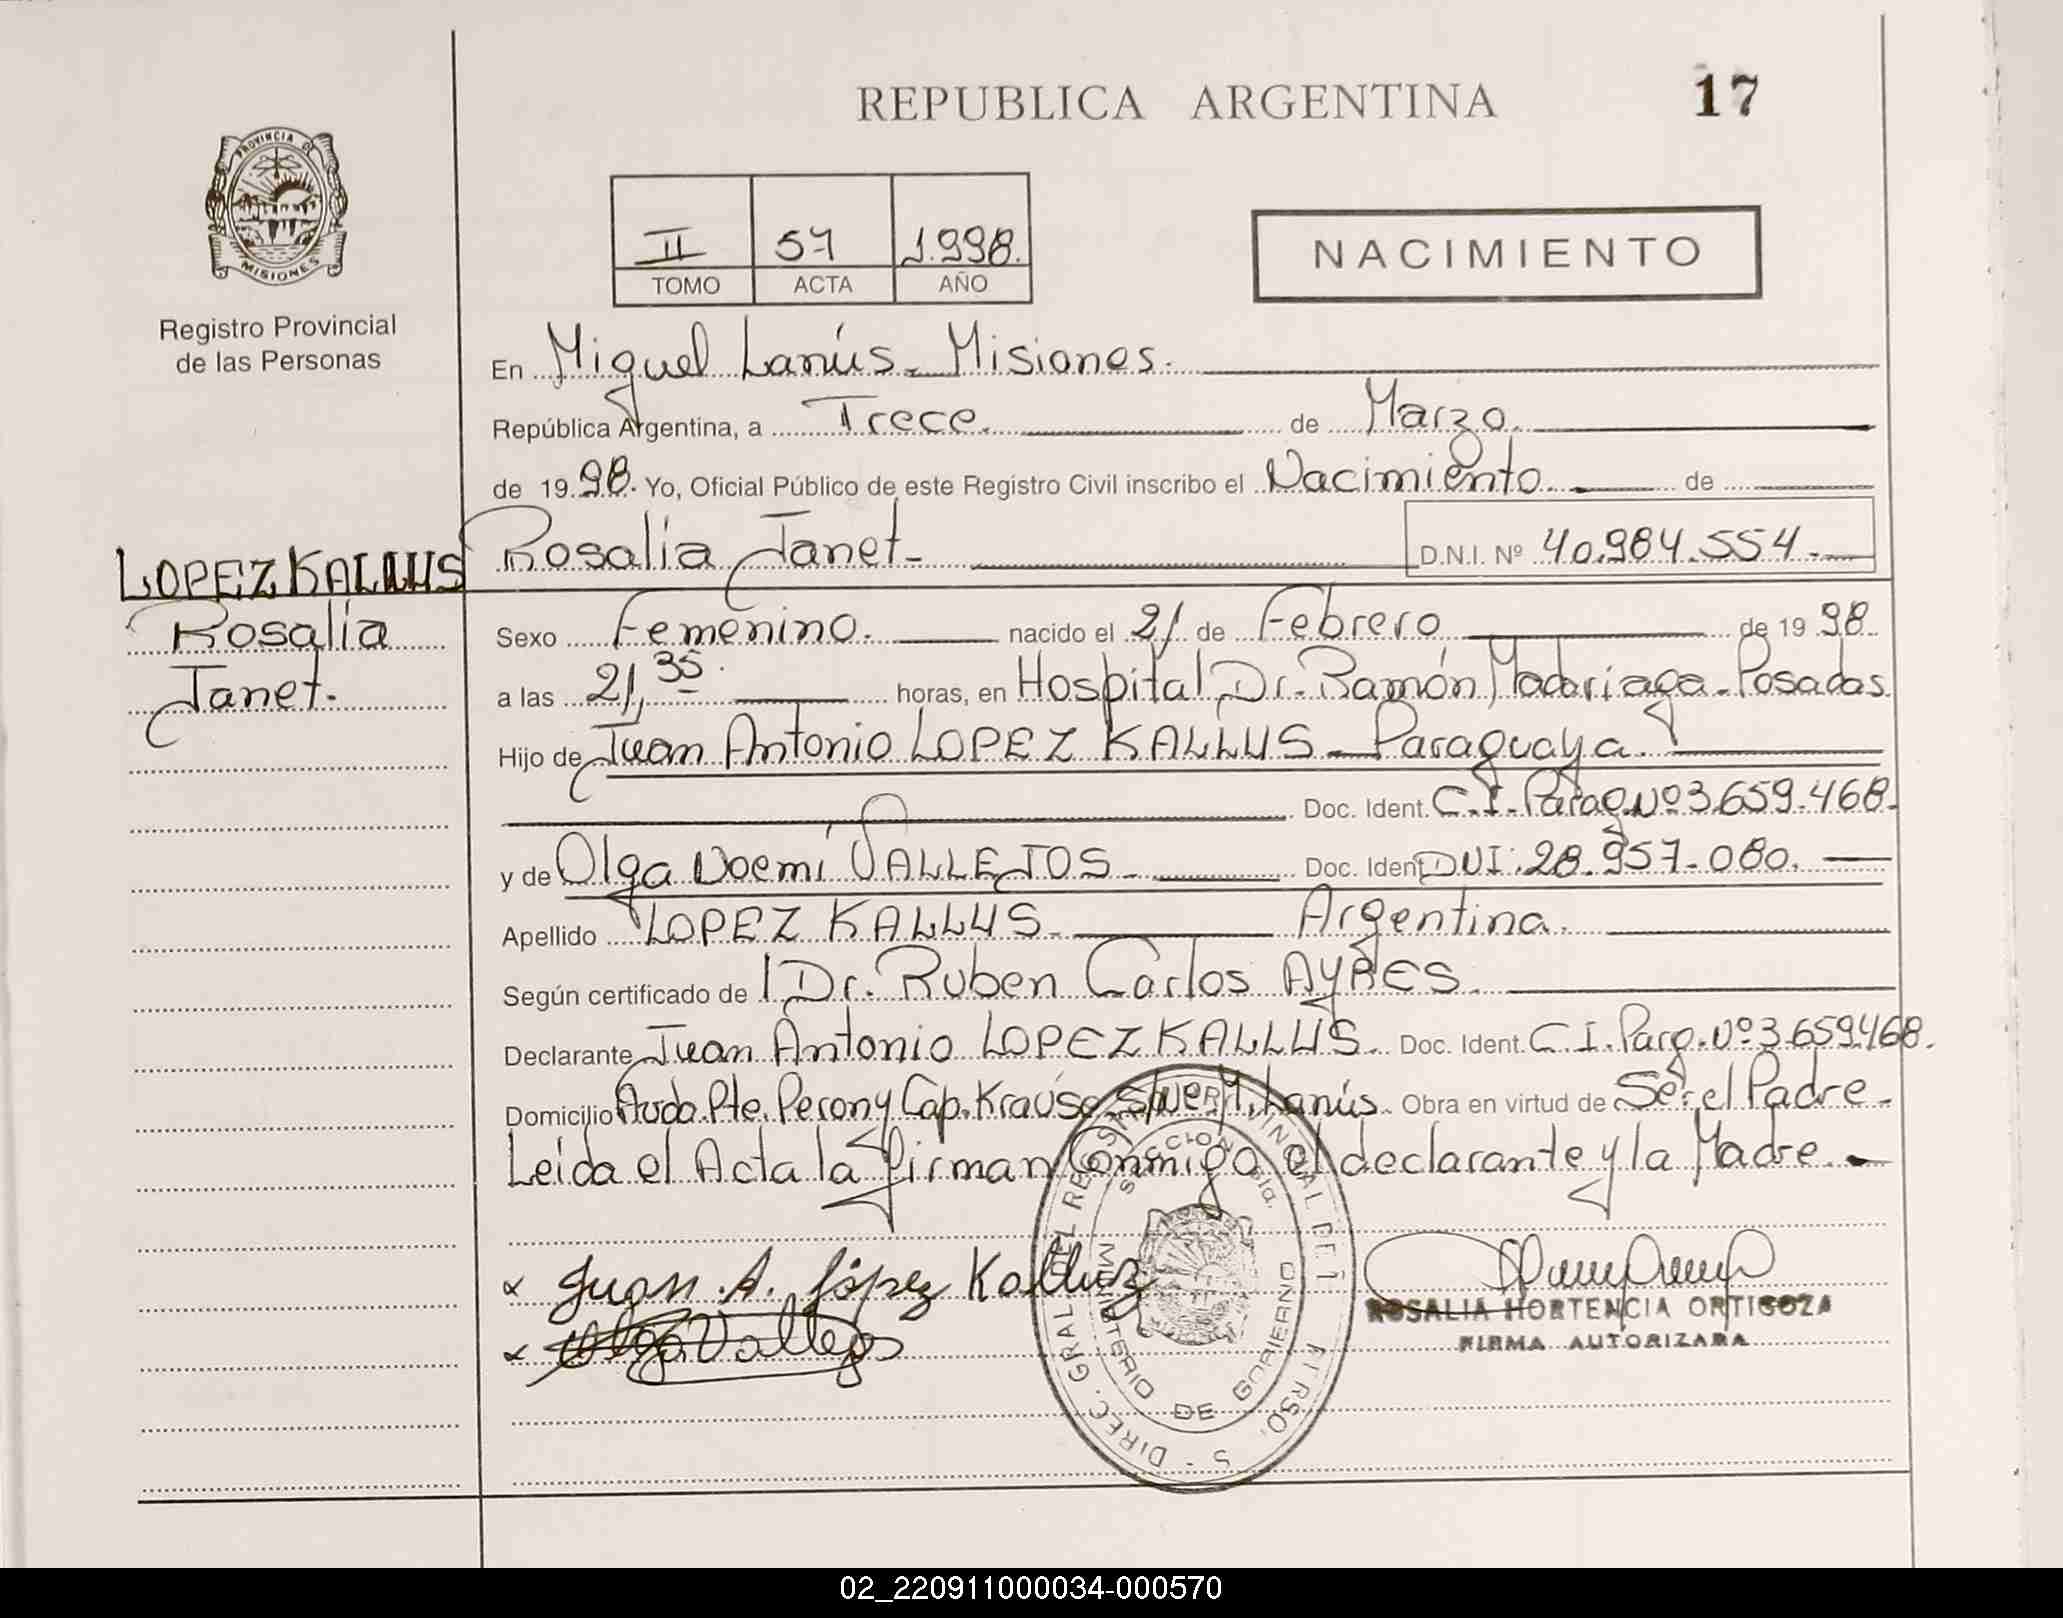 REPUBLICA ARGENTINA
17
PROVINCIA DE
MISIONES
Registro Provincial
de las Personas
II 57 1.998.
TOMO ACTA AÑO
NACIMIENTO
En Miguel Lanús - Misiones.
República Argentina, a Trece. de Marzo.
de 19 98. Yo, Oficial Público de este Registro Civil inscribo el Nacimiento de
Rosalia Janet- D.N.I. Nº 40.984.554.-
LOPEZ KALLUS
Rosalia
Janet.
Sexo Femenino. nacido el 21 de Febrero de 19 98.
a las 21,35 horas, en Hospital Dr. Ramón Madariaga - Posadas
Hijo de Juan Antonio LOPEZ KALLUS - Paraguaya.
Doc. Ident. C.I. Parag. Nº 3.659.468.
y de Olga Noemí VALLEJOS - Doc. Ident DNI: 28.957.080.
Apellido LOPEZ KALLUS. Argentina.
Según certificado de Dr. Ruben Carlos AYRES.
Declarante Juan Antonio LOPEZ KALLUS. Doc. Ident. C.I. Parg. Nº 3.659.468.
Domicilio Avda. Pte. Peron y Cap. Krause - M. Lanús. Obra en virtud de Ser el Padre.
Leida el Acta la firman Conmigo el declarante y la Madre.-
x Juan A. López Kalluz
x Olga Vallejos
ROSALIA HORTENCIA ORTIGOZA
FIRMA AUTORIZADA
DIREC. GRAL. DEL REGISTRO PROVINCIAL DE
MINISTERIO DE GOBIERNO
02_220911000034-000570